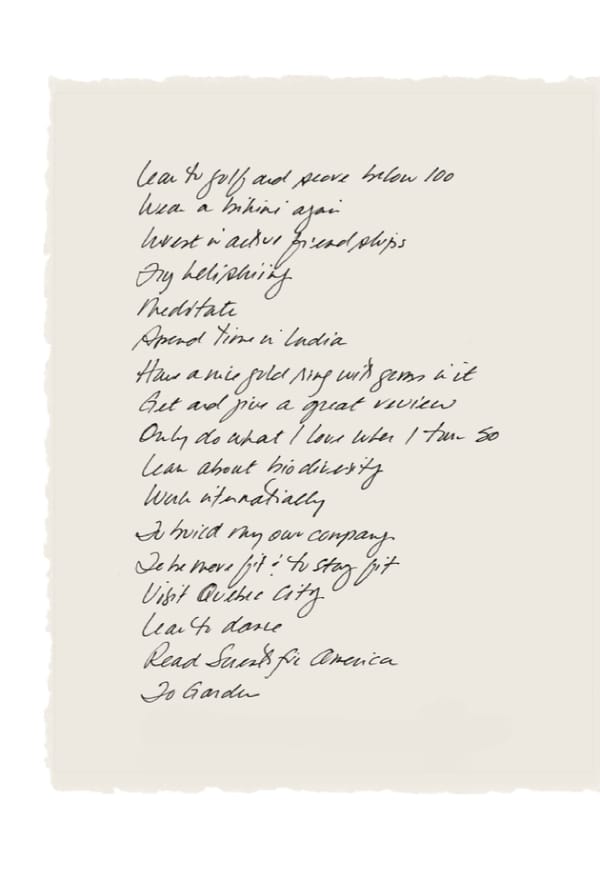 Learn to golf and score below 100
Wear a bikini again
Invest in active friendships
Try heliskiing
Meditate
Spend time in India
Have a nice gold ring with gems in it
Get and give a great review
Only do what I love when I turn 50
Learn about biodiversity
Work internationally
To build my own company
To be more fit & to stay fit
Visit Quebec City
Learn to dance
Read Scientific America
To Garden